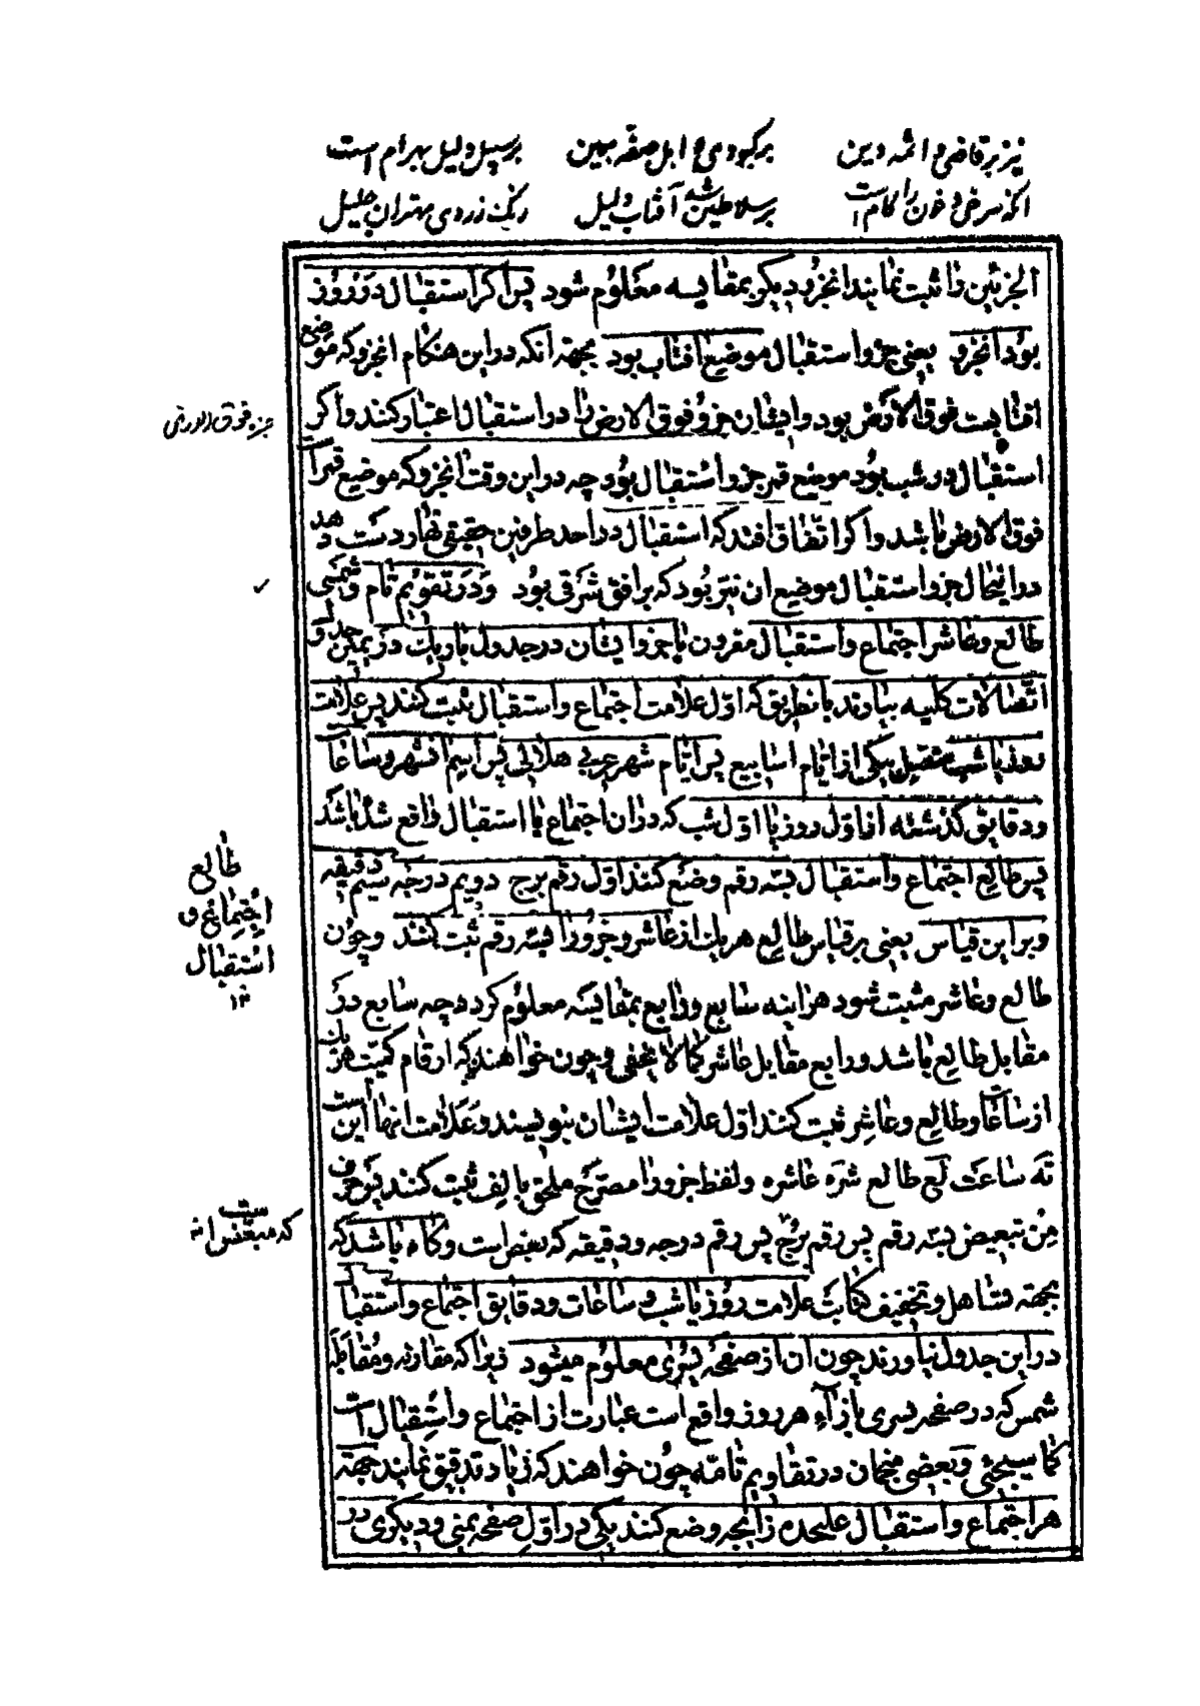 نیز بر قاضی و ائمه دین بر کبودی و اهل صفه مبین بر سپل دلیل بهرام است
آنکه سرخی و خون را کام است بر سلاطین شه آفتاب دلیل رنگ زردی مهتران جلیل
الجزئین را ثبت نمایند انجزو دیکر بمقایسه معلوم شود پس اکر استقبال در روز
بود انجزو یعنی جزو استقبال موضع افتاب بود بجهته آنکه در این هنکام انجزو که موضع
افتابست فوق الارض بود و ایشان جزو فوق الارض را در استقبال اعتبار کنند و اکر
جزء فوق الارض
استقبال در شب بود موضع قمر جزو استقبال بود چه در این وقت انجزو که موضع قمر است
فوق الارض باشد و اکر اتفاق افتد که استقبال در احد طرفین حقیقی نهار دست دهد
در اینحال جزو استقبال موضع ان نیر بود که بر افق شرقی بود و در تقویم تام و شمسی
طالع و عاشر اجتماع و استقبال مقرون با جزو ایشان در جدول باریک در یمین جدول
اتصالات کلیه بیاورند بانطریق که اول علامت اجتماع و استقبال ثبت کنند پس علامت
روز یا شب متصل بیکی از ایام اسابیع پس ایام شهر عربی هلالی پس اسم انشهر و ساعات
و دقایق کذشته از اول روز یا اول شب که در ان اجتماع یا استقبال واقع شده باشد
طالع
اجتماع و
استقبال
پس طالع اجتماع و استقبال بسه رقم وضع کنند اول رقم برج دویم درجه سیم دقیقه
و بر این قیاس یعنی بر قیاس طالع هر یک از عاشر و جزو را بسه رقم ثبت کنند و چون
طالع و عاشر مثبت شود هراینه سابع و رابع بمقایسه معلوم کردد چه سابع در
مقابل طالع باشد و رابع مقابل عاشر کما لا یخفی و چون خواهند که ارقام کمیت هر یک
از ساعات و طالع و عاشر ثبت کنند اول علامت ایشان بنویسند و علامت انها این است
ته ساعت لع طالع شره عاشره و لفظ جزو را مصرح ملحق بالف ثبت کنند پس حرف
من تبعیض بسه رقم پس رقم برج پس رقم درجه و دقیقه که بعض است و کاه باشد که
که مبعض است
بجهته تساهل و تخفیف کتابت علامت روز یا شب و ساعات و دقایق اجتماع و استقبال
در این جدول نیاورند چون ان از صفحه یسری معلوم میشود زیرا که مقارنه و مقابله
شمس که در صفحه یسری بازآء هر روز واقع است عبارت از اجتماع و استقبال است
کما سیجئی و بعضی منجمان در تقاویم تامه چون خواهند که زیاد تدقیق نمایند جهته
هر اجتماع و استقبال علیحده زایجه وضع کنند یکی در اول صفحه یمنی و دیکری در